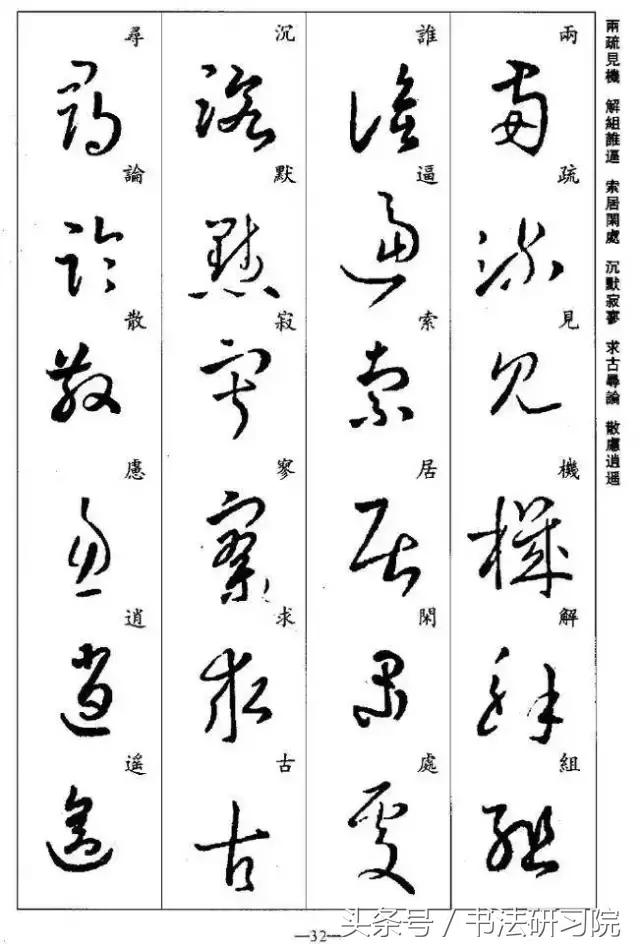 兩疏見機 解組誰逼 索居閑處 沉默寂寥 求古尋論 散慮逍遥
兩疏見機解組
誰逼索居閑處
沉默寂寥求古
尋論散慮逍遥
—32—
头条号 / 书法研习院